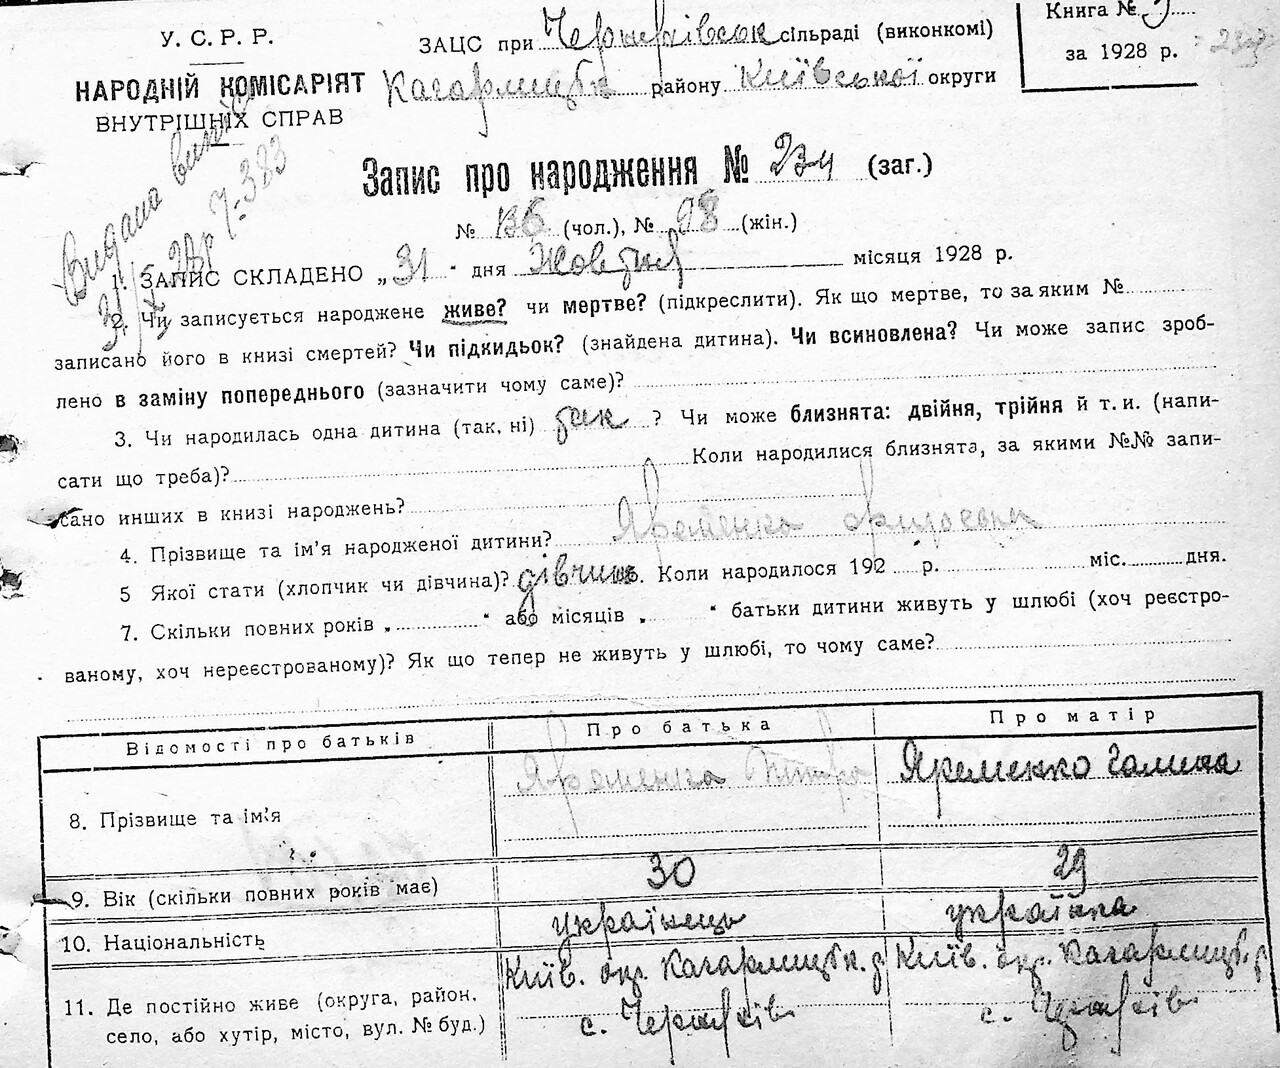 У. С. Р. Р.
НАРОДНІЙ КОМІСАРІЯТ
ВНУТРІШНІХ СПРАВ
ЗАЦС при сільраді (виконкомі)
Кагарлицьк. району Київської округи
Книга №
за 1928 р.
Видана
7-383
Запис про народження № 234 (заг.)
№ 136 (чол.), № 98 (жін.)
1. ЗАПИС СКЛАДЕНО „31" дня Жовтня місяця 1928 р.
2. Чи записується народжене живе? чи мертве? (підкреслити). Як що мертве, то за яким №
записано його в книзі смертей? Чи підкидьок? (знайдена дитина). Чи всиновлена? Чи може запис зроб-
лено в заміну попереднього (зазначити чому саме)?
3. Чи народилась одна дитина (так, ні) так ? Чи може близнята: двійня, трійня й т. и. (напи-
сати що треба)? Коли народилися близнята, за якими №№ запи-
сано инших в книзі народжень?
4. Прізвище та ім'я народженої дитини? Яременко
5 Якої стати (хлопчик чи дівчина)? дівчина 6. Коли народилось 192 р. міс. дня.
7. Скільки повних років „ " або місяців „ " батьки дитини живуть у шлюбі (хоч реєстро-
ваному, хоч нереєстрованому)? Як що тепер не живуть у шлюбі, то чому саме?
Відомості про батьків Про батька Про матір
8. Прізвище та ім'я Яременко Яременко Галина
9. Вік (скільки повних років має) 30 29
10. Національність українець українка
11. Де постійно живе (округа, район, Київ. окр. Кагарлицьк. р Київ. окр. Кагарлицьк. р
село, або хутір, місто, вул. № буд.) с. с.